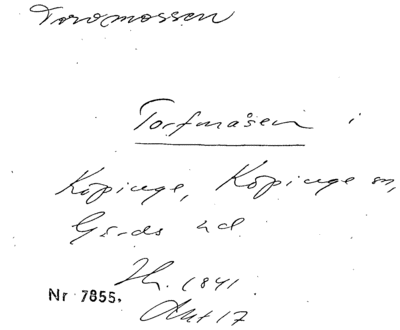 Torvmossen
Torfmåsen i
Köpinge, Köpinge sn,
Gärds hd
Th. 1841.
Nr 7855. Akt 17